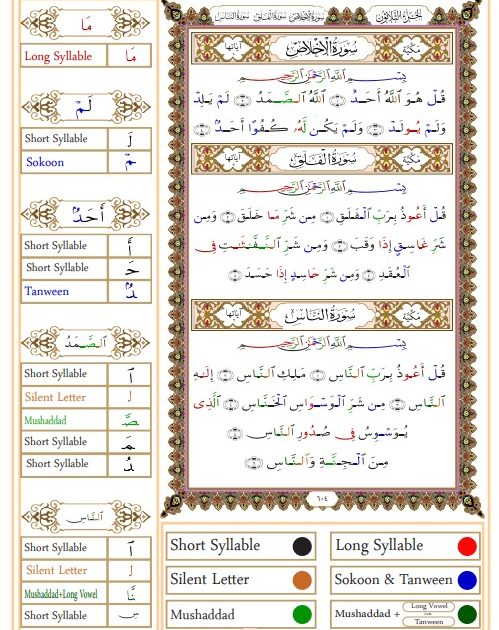 مَا
Long Syllable مَا
لَمْ
Short Syllable لَ
Sokoon مْ
أَحَدٌ
Short Syllable أَ
Short Syllable حَ
Tanween دٌ
ٱلصَّمَدُ
Short Syllable ٱ
Silent Letter ل
Mushaddad صَّ
Short Syllable مَ
Short Syllable دُ
ٱلنَّاسِ
Short Syllable ٱ
Silent Letter ل
Mushaddad+Long Vowel نَّا
Short Syllable سِ
الجزء الثلاثون سورة الإخلاص سورة الفلق سورة الناس
مكية سُورَةُ الإِخْلَاصِ آياتها
بِسْمِ ٱللَّهِ ٱلرَّحْمَٰنِ ٱلرَّحِيمِ
قُلْ هُوَ ٱللَّهُ أَحَدٌ ١ ٱللَّهُ ٱلصَّمَدُ ٢ لَمْ يَلِدْ
وَلَمْ يُولَدْ ٣ وَلَمْ يَكُن لَّهُۥ كُفُوًا أَحَدٌ ٤
مكية سُورَةُ الفَلَقِ آياتها
بِسْمِ ٱللَّهِ ٱلرَّحْمَٰنِ ٱلرَّحِيمِ
قُلْ أَعُوذُ بِرَبِّ ٱلْفَلَقِ ١ مِن شَرِّ مَا خَلَقَ ٢ وَمِن
شَرِّ غَاسِقٍ إِذَا وَقَبَ ٣ وَمِن شَرِّ ٱلنَّفَّٰثَٰتِ فِى
ٱلْعُقَدِ ٤ وَمِن شَرِّ حَاسِدٍ إِذَا حَسَدَ ٥
مكية سُورَةُ النَّاسِ آياتها
بِسْمِ ٱللَّهِ ٱلرَّحْمَٰنِ ٱلرَّحِيمِ
قُلْ أَعُوذُ بِرَبِّ ٱلنَّاسِ ١ مَلِكِ ٱلنَّاسِ ٢ إِلَٰهِ
ٱلنَّاسِ ٣ مِن شَرِّ ٱلْوَسْوَاسِ ٱلْخَنَّاسِ ٤ ٱلَّذِى
يُوَسْوِسُ فِى صُدُورِ ٱلنَّاسِ ٥
مِنَ ٱلْجِنَّةِ وَٱلنَّاسِ ٦
٦٠٤
Short Syllable Long Syllable
Silent Letter Sokoon & Tanween
Mushaddad Mushaddad + Long Vowel
Tanween